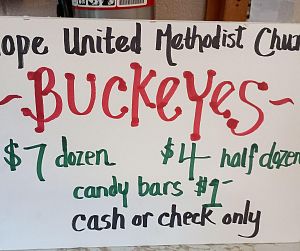 ope United Methodist Chu
~BUCKEYES~
$7 dozen $4 half dozen
candy bars $1-
cash or check only